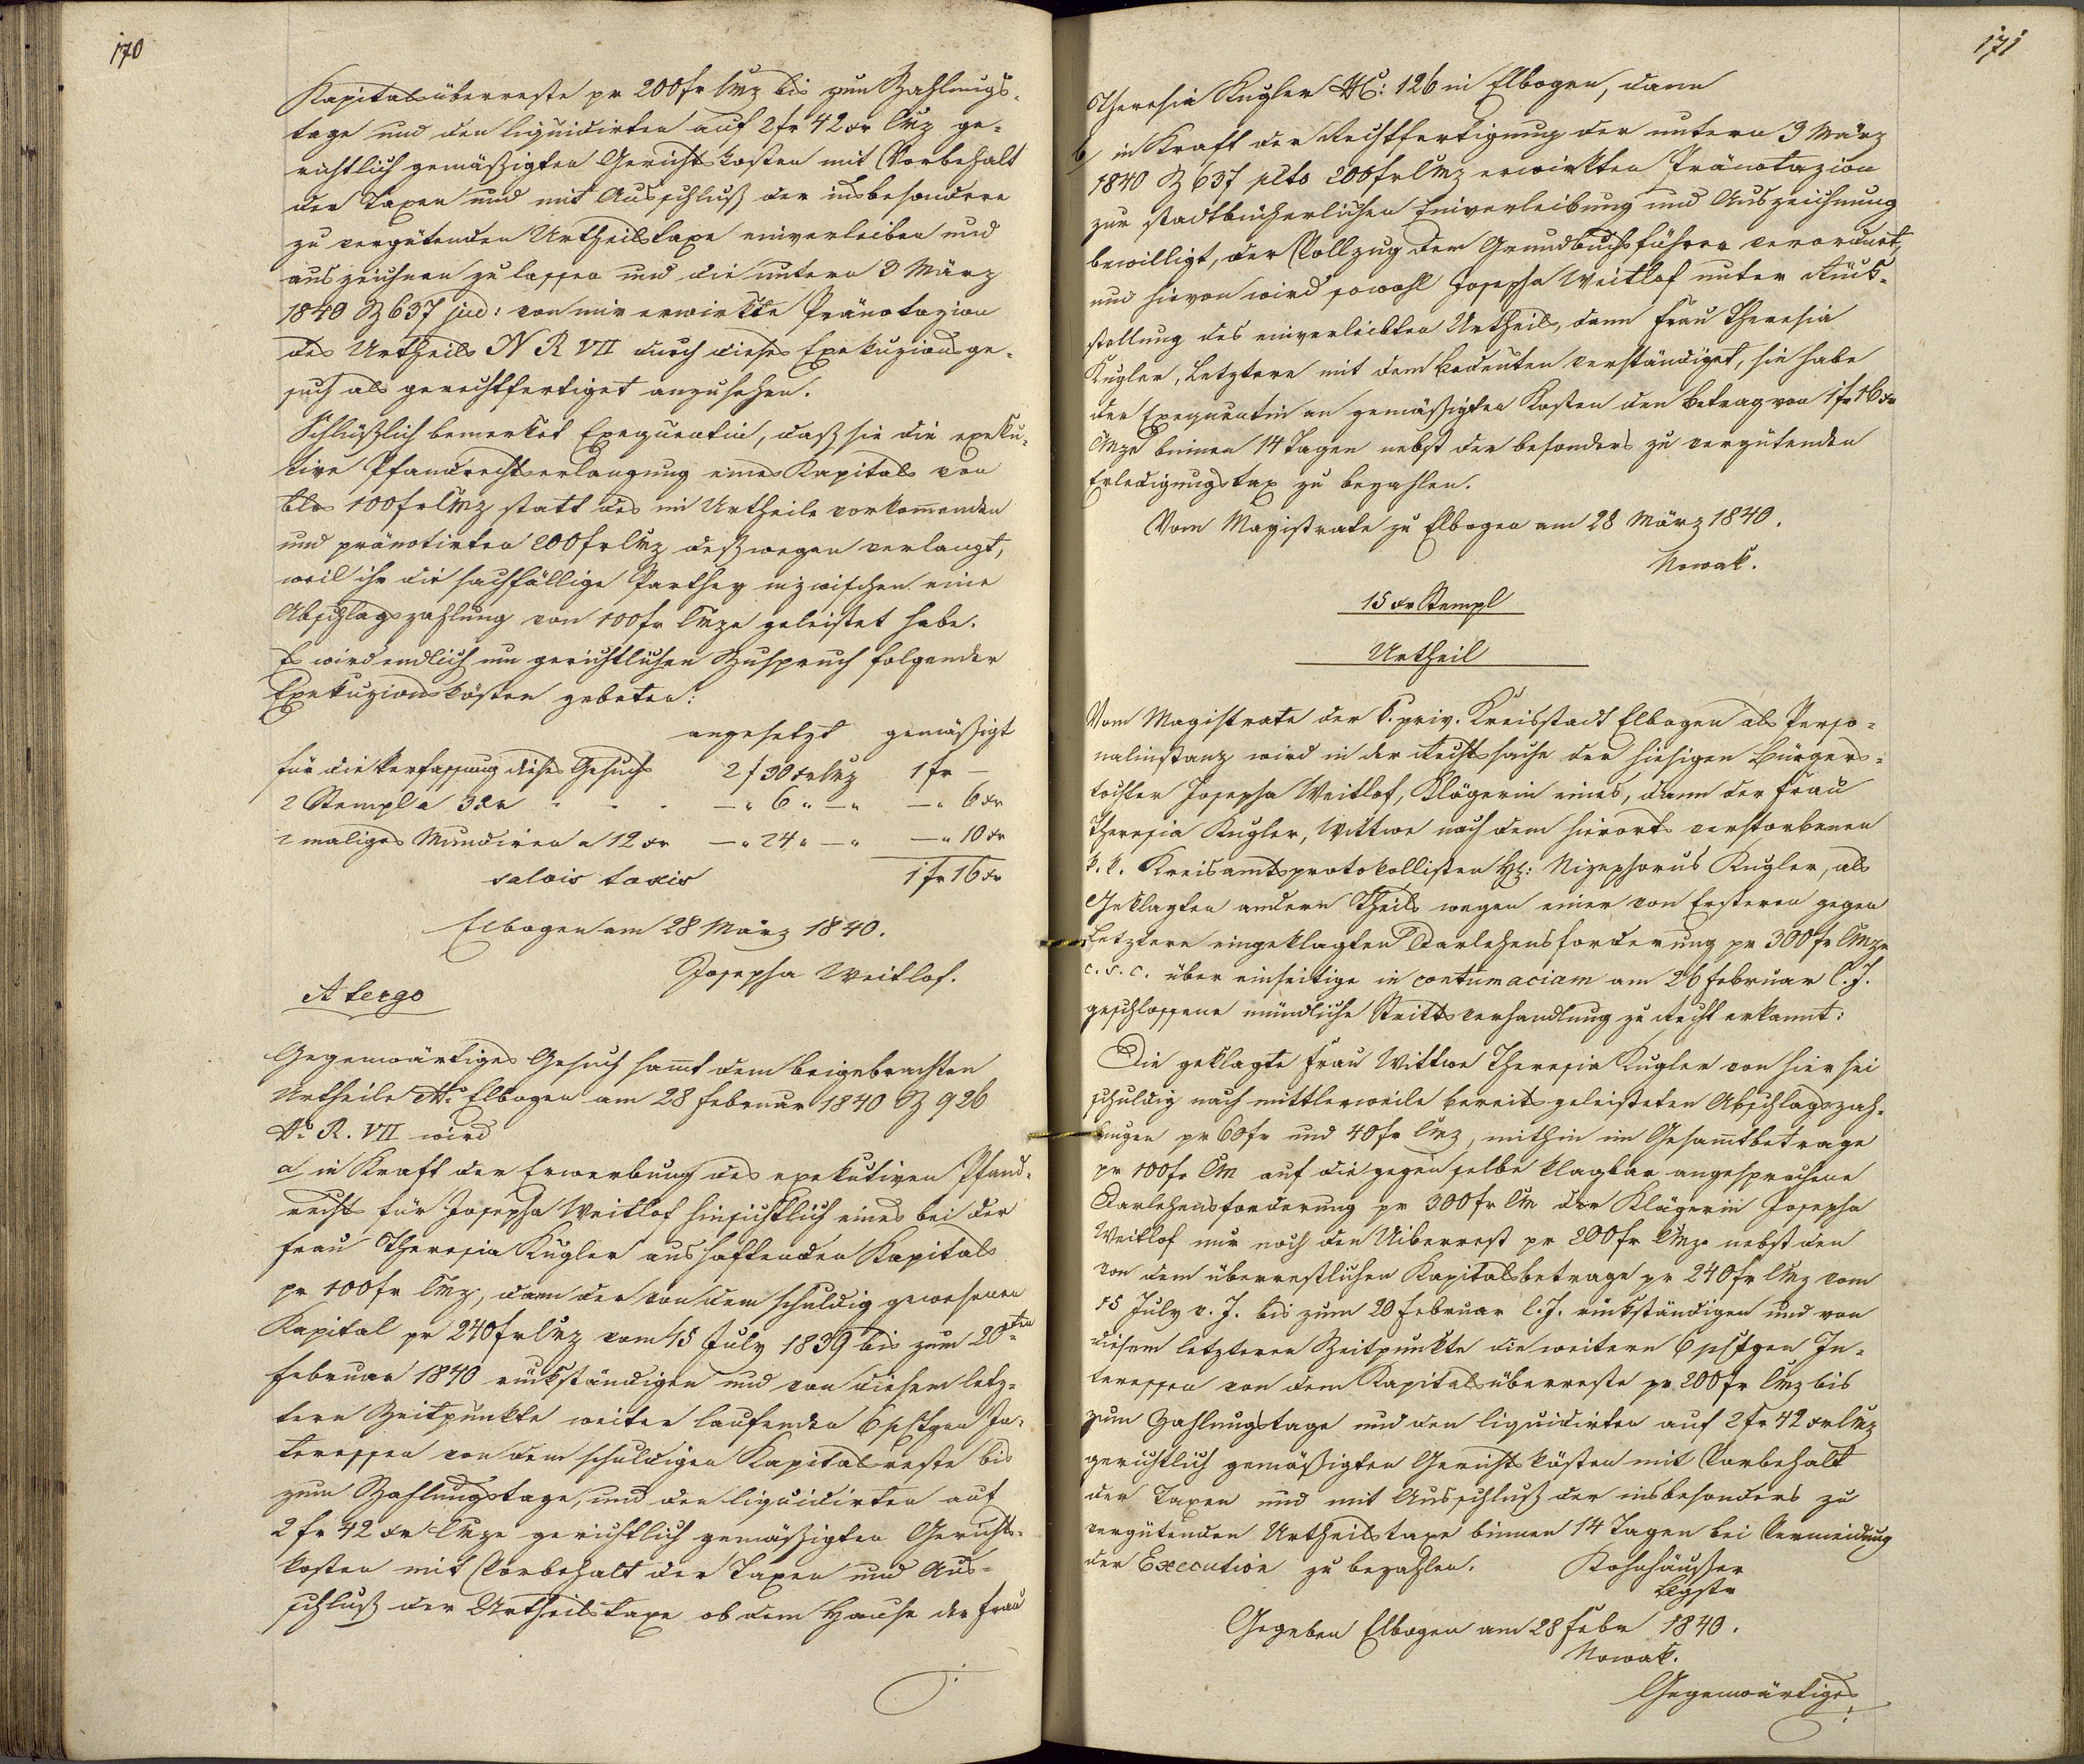 170
Kapitalsüberreste pr 200 fr CMz bis zum Zahlungs-
tage und den liquidirten auf 2 fr 42 xr CMz ge-
richtlich gemäßigten Gerichtskosten mit Vorbehalt
der Taxen und mit Ausschluß der insbesondere
zu vergütenden Urtheilstaxe einverleiben und
auszeichnen zu lassen und die unterm 3 März
1840 Z 637 jud: von mir erwirkte Pränotazion
des Urtheils N R VII durch dieses Exekuzionsge-
such als gerechtfertiget anzusehen.
Schlüßlich bemerket Exequentin, daß sie die exeku-
tive Pfandrechtserlangung eines Kapitals von
blos 100 fr CMz statt des im Urtheile vorkommenden
und pränotirten 200 fr CMz deßwegen verlangt,
weil ihr die sachfällige Parthey inzwischen eine
Abschlagszahlung von 100 fr CMze geleistet habe.
Es wird endlich um gerichtlichen Zuspruch folgender
Exekuzionskösten gebeten:
angesetzt gemäßigt
für die Verfassung dieses Gesuchs 2 f 30 xr CMz 1 fr —
2 Stempl a 3 xr - - - —„ 6 „ —„ —„ 6 xr
2 maliges Mundiren a 12 xr —„ 24 „ —„ —„ 10 xr
salvis taxis 1 fr 16 xr
Elbogen am 28 März 1840.
Josepha Weitlof.
A tergo
Gegenwärtiges Gesuch samt dem beigebrachten
Urtheile dto. Elbogen am 28 Februar 1840 Z 926
No. R. VII wird
a/ in Kraft der Erwerbung des exekutiven Pfand-
rechts für Josepha Weitlof hinsichtlich eines bei der
Frau Theresia Kugler aushaftenden Kapitals
pr 100 fr CMz, dann der von dem schuldig gewesenen
Kapital pr 240 fr CMz vom 15 July 1839 bis zum 20ten
Februar 1840 rückständigen und von diesem letz-
tern Zeitpunkte weiter laufenden 6 pctgen In-
teressen von dem schuldigen Kapitalsreste bis
zum Zahlungstage, und der liquidirten auf
2 fr 42 xr CMze gerichtlich gemäßigten Gerichts-
kosten mit Vorbehalt der Taxen und Aus-
schluß der Urtheilstaxe ob dem Hause der Frau
171
Theresia Kugler NC: 126 in Elbogen, dann
b/ in Kraft der Rechtfertigung der unterm 3 März
1840 Z 637 plto 200 fr CMz erwirkten Pränotazion
zur stadtbücherlichen Einverleibung und Auszeichnung
bewilligt, der Vollzug dem Grundbuchsführer verordnet,
und hievon wird sowohl Josepha Weitlof unter Rück-
stellung des einverleibten Urtheils, dann Frau Theresia
Kugler, Letztere mit dem Bedeuten verständiget, sie habe
der Exequentin an gemäßigten Kosten den Betrag von 1 fr 16 xr
CMze binnen 14 Tagen nebst der besonders zu vergütenden
Erledigungstax zu bezahlen.
Vom Magistrate zu Elbogen am 28 März 1840.
Nowak.
15 xr Stempl
Urtheil
Vom Magistrate der k. priv. Kreisstadt Elbogen als Perso-
nalinstanz wird in der Rechtssache der hiesigen Bürgers-
tochter Josepha Weitlof, Klägerin eines, dann der Frau
Theresia Kugler, Wittwe nach dem hierorts verstorbenen
k. k. Kreisamtsprotokollisten H: Nizephorus Kugler, als
Geklagten andern Theils wegen einer von Ersteren gegen
Letztere eingeklagten Darlehensforderung pr 300 fr CMze
c. s. c. über einseitige in contumaciam am 26 Februar l. J.
geschlossene mündliche Streittverhandlung zu Recht erkannt:
Die geklagte Frau Wittwe Theresia Kugler von hier sei
schuldig nach mittlerweile bereits geleisteten Abschlagszah-
lungen pr 60 fr und 40 fr CMz, mithin im Gesamtbetrage
pr 100 fr CM auf die gegen selbe klagbar angesprochene
Darlehensforderung pr 300 fr CM der Klägerin Josepha
Weitlof nur noch den Uiberrest pr 200 fr CMze nebst den
von dem überrestlichen Kapitalsbetrage pr 240 fr CMz vom
15 July v. J. bis zum 20 Februar l. J. rückständigen und von
diesem letzteren Zeitpunkte die weitern 6 pctgen In-
teressen von dem Kapitalsüberreste pr 200 fr CMz bis
zum Zahlungstage und den liquidirten auf 2 fr 42 xr CMz
gerichtlich gemäßigten Gerichtskösten mit Vorbehalt
der Taxen und mit Ausschluß der insbesonders zu
vergütenden Urtheilstaxe binnen 14 Tagen bei Vermeidung
der Execution zu bezahlen. Kohnhäußer
Bgstr
Gegeben Elbogen am 28 Febr 1840.
Nowak.
Gegenwärtiges